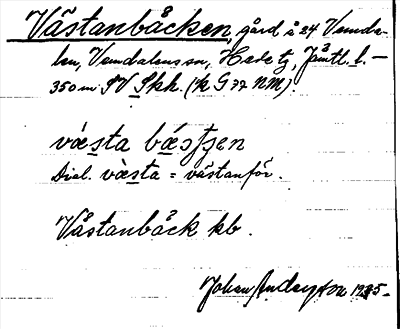 Västanbäcken, gård å 24 Vemda-
len, Vemdalens sn, Hede tg, Jämtl. l. —
350 m SV Skh. (1/2 G 37 NM).
væsta bæsʃʃen
Dial. væsta = västanför.
Västanbäck kb.
Johan 1935